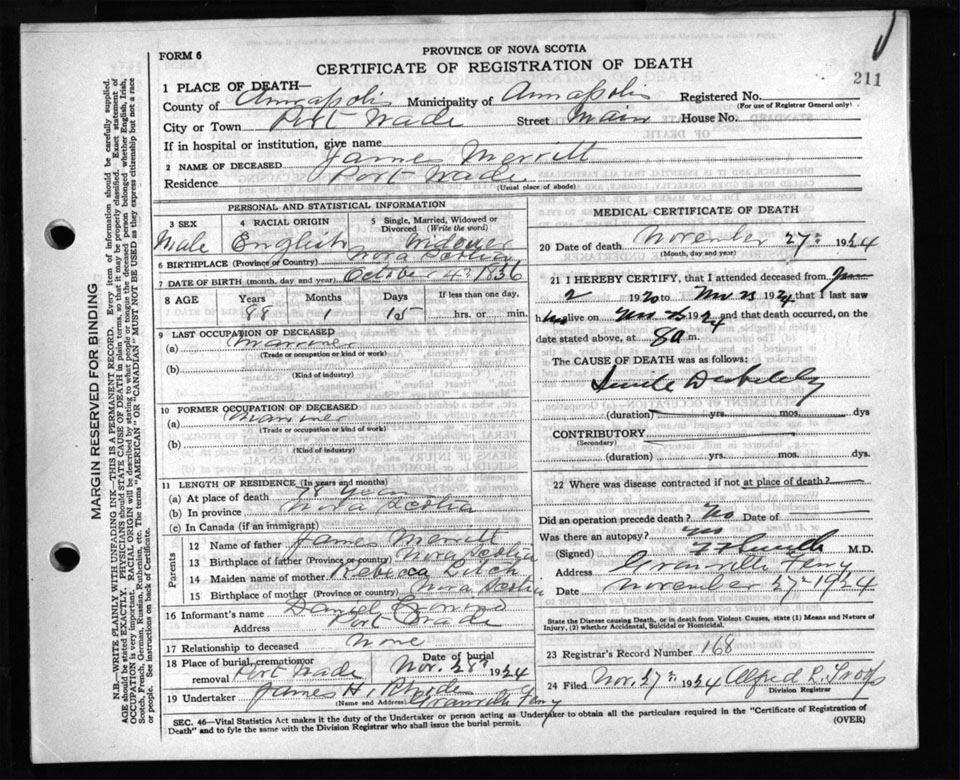 211
FORM 6
PROVINCE OF NOVA SCOTIA
CERTIFICATE OF REGISTRATION OF DEATH
1 PLACE OF DEATH—
County of Annapolis Municipality of Annapolis Registered No.
(For use of Registrar General only)
City or Town Port Wade Street Main House No.
If in hospital or institution, give name
2 NAME OF DECEASED James Merritt
Residence Port Wade
(Usual place of abode)
PERSONAL AND STATISTICAL INFORMATION
3 SEX Male
4 RACIAL ORIGIN English
5 Single, Married, Widowed or Divorced (Write the word) Widower
6 BIRTHPLACE (Province or Country) Nova Scotia
7 DATE OF BIRTH (month, day and year) October 4th 1836
8 AGE Years 88 Months 1 Days 15 If less than one day, hrs. or min.
9 LAST OCCUPATION OF DECEASED
(a) Mariner
(Trade or occupation or kind or work)
(b)
(Kind of industry)
10 FORMER OCCUPATION OF DECEASED
(a) Mariner
(Trade or occupation or kind of work)
(b)
(Kind of industry)
11 LENGTH OF RESIDENCE (In years and months)
(a) At place of death 78 Years
(b) In province Nova Scotia
(c) In Canada (if an immigrant)
Parents
12 Name of father James Merritt
13 Birthplace of father (Province or country) Nova Scotia
14 Maiden name of mother Rebecca Litch
15 Birthplace of mother (Province or country) Nova Scotia
16 Informant's name Daniel
Address Port Wade
17 Relationship to deceased None
18 Place of burial, cremation or removal Port Wade Date of burial Nov. 28th 1924
19 Undertaker James H.
(Name and Address) Granville Ferry
MEDICAL CERTIFICATE OF DEATH
20 Date of death November 27th 1924
(Month, day and year)
21 I HEREBY CERTIFY, that I attended deceased from
2 1920 to Nov 23 1924 that I last saw
him alive on Nov 23 1924 and that death occurred, on the
date stated above, at 8 a m.
The CAUSE OF DEATH was as follows:
Senile Debility
(duration) yrs. mos. dys
CONTRIBUTORY
(Secondary)
(duration) yrs. mos. dys.
22 Where was disease contracted if not at place of death?
Did an operation precede death? No Date of
Was there an autopsy? No
(Signed) M.D.
Address Granville Ferry
Date November 27th 1924
State the Disease causing Death, or in death from Violent Causes, state (1) Means and Nature of Injury, (2) whether Accidental, Suicidal or Homicidal.
23 Registrar's Record Number 168
24 Filed Nov. 27th 1924 Alfred L. Troop
Division Registrar
SEC. 46—Vital Statistics Act makes it the duty of the Undertaker or person acting as Undertaker to obtain all the particulars required in the "Certificate of Registration of
Death" and to fyle the same with the Division Registrar who shall issue the burial permit.
(OVER)
MARGIN RESERVED FOR BINDING
N.B.—WRITE PLAINLY WITH UNFADING INK—THIS IS A PERMANENT RECORD. Every item of information should be carefully supplied.
AGE should be stated EXACTLY. PHYSICIANS should STATE CAUSE OF DEATH in plain terms, so that it may be properly classified. Exact statement of
OCCUPATION is very important. RACIAL ORIGIN will be described by stating to what people or tongue the deceased person belonged whether English, Irish,
Scotch, French, German, Russian, Ruthenian, etc. The terms "AMERICAN" or "CANADIAN" MUST NOT BE USED as they express citizenship but not a race
or people. See instructions on back of Certificate.